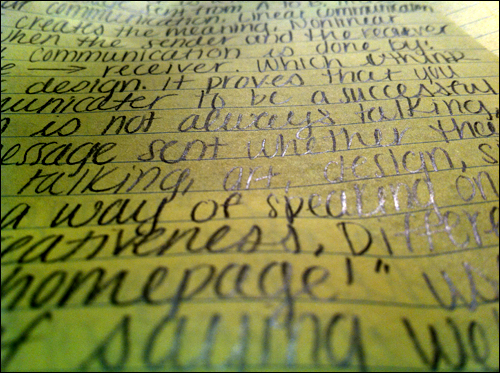 sent from A to B.
communication. Linear communication
creates the meaning. Nonlinear
when the sender and the receiver
communication is done by:
→ receiver. Which I think
design. It proves that you
municater to be a successful
is not always talking,
essage sent whether that
talking, art, design, s
a way of speaking on
eativeness. Differe
homepage'"
f saying wo